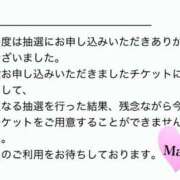 度は抽選にお申し込みいただきありか
ざいました。
お申し込みいただきましたチケットに
して、
なる抽選を行った結果、残念ながら今
ケットをご用意することができません
。
のご利用をお待ちしております。
Ma